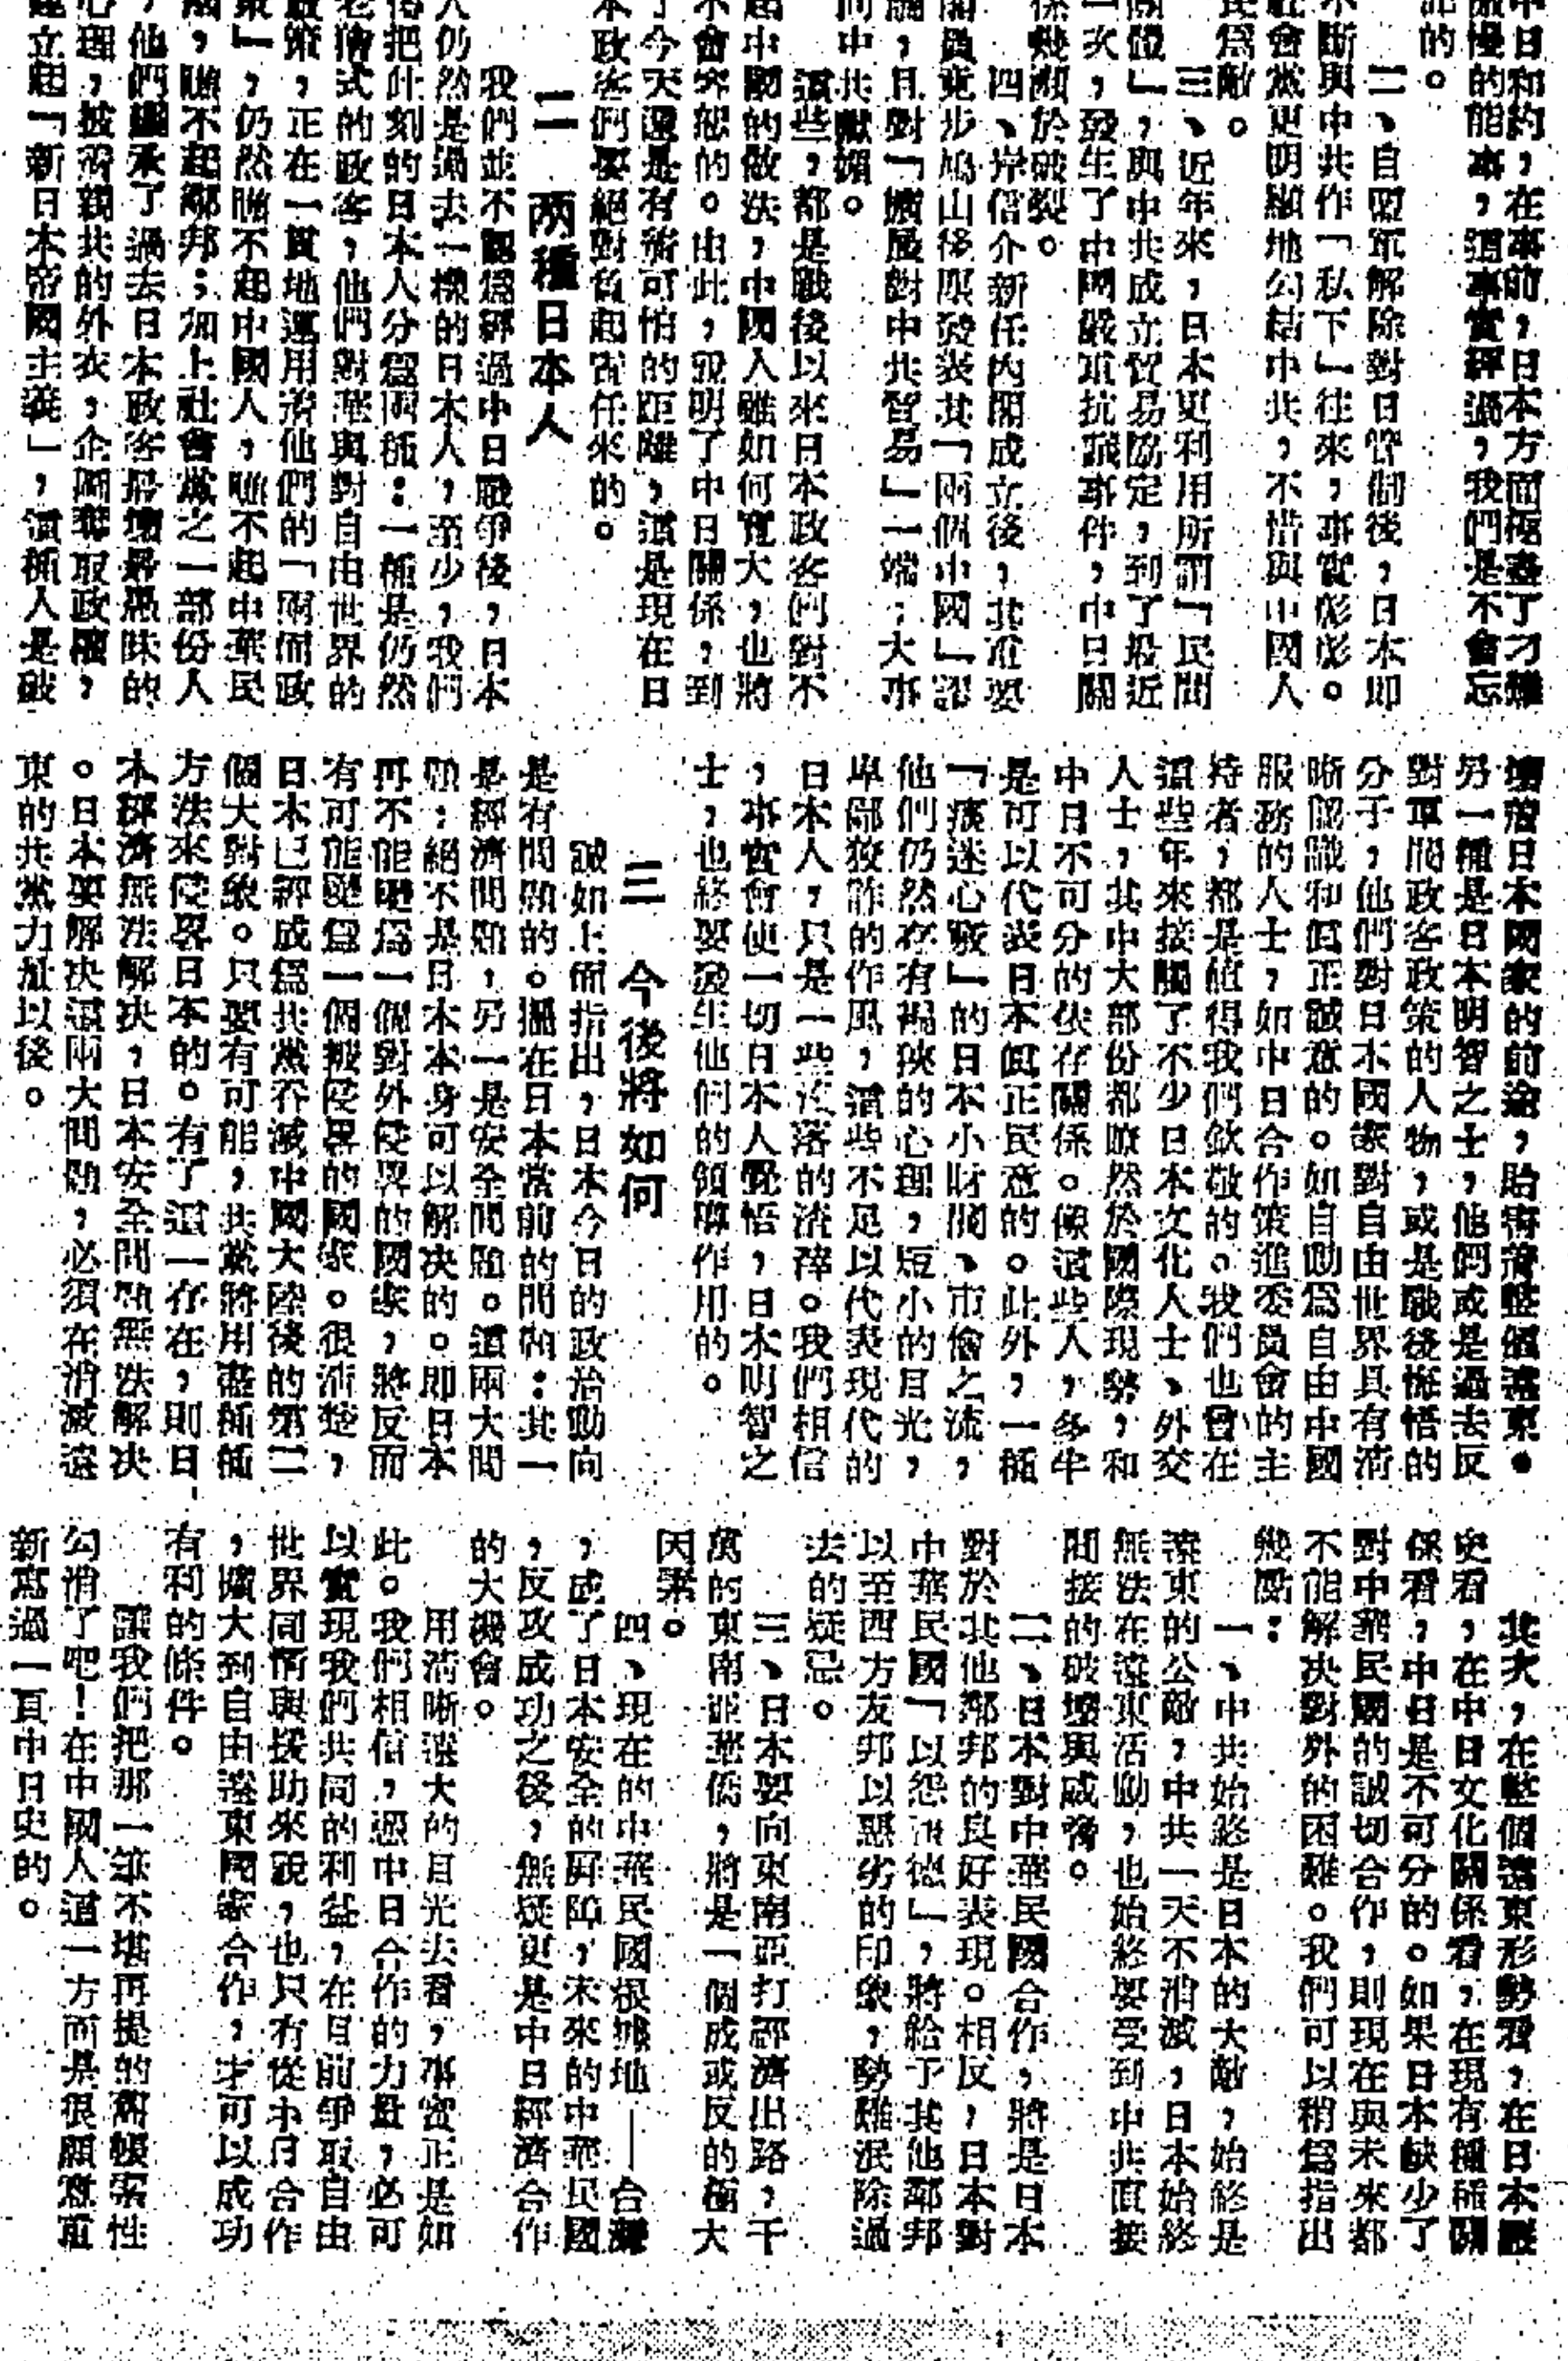 中日和約，在事前，日本方面極盡了刁難
傲慢的能事，這事實經過，我們是不會忘
記的。
二、自盟軍解除對日管制後，日本即
不斷與中共作「私下」往來，事實彰彰。
社會黨更明顯地勾結中共，不惜與中國人
民爲敵。
三、近年來，日本更利用所謂「民間
團體」，與中共成立貿易協定，到了最近
一次，發生了中國嚴重抗議事件，中日關
係幾瀕於破裂。
四、岸信介新任內閣成立後，其重要
閣員竟步鳩山後塵發表其「兩個中國」謬
論，且對「擴展對中共貿易」一端，大事
向中共獻媚。
這些，都是戰後以來日本政客們對不
起中國的做法，中國人雖如何寬大，也將
不會容恕的。由此，說明了中日關係，到
了今天還是有着可怕的距離，這是現在日
本政客們要絕對負起責任來的。
二　两種日本人
我們並不認爲經過中日戰爭後，日本
人仍然是過去一樣的日本人，至少，我們
得把此刻的日本人分爲兩種：一種是仍然
老僧式的政客，他們對華與對自由世界的
政策，正在一貫地運用着他們的「兩面政
策」，仍然瞧不起中國人，瞧不起中華民
國，瞧不起鄰邦；加上社會黨之一部份人
，他們繼承了過去日本政客最壞最愚昧的
心理，披着親共的外衣，企圖奪取政權，
建立起「新日本帝國主義」，這種人是破
壞着日本國家的前途，貽害着整個遠東。
另一種是日本明智之士，他們或是過去反
對軍閥政客政策的人物，或是戰後悔悟的
分子，他們對日本國家對自由世界具有清
晰認識和眞正誠意的。如自動爲自由中國
服務的人士，如中日合作策進委員會的主
持者，都是值得我們欽敬的。我們也曾在
這些年來接觸了不少日本文化人士、外交
人士，其中大部份都瞭然於國際現勢，和
中日不可分的依存關係。像這些人，多半
是可以代表日本眞正民意的。此外，一種
「痰迷心竅」的日本小財閥、市儈之流，
他們仍然存有褊狹的心理，短小的目光，
卑鄙狡詐的作風，這些不足以代表現代的
日本人，只是一些沒落的渣滓。我們相信
，事實會使一切日本人覺悟，日本明智之
士，也終要發生他們的領導作用的。
三　今後將如何
誠如上面指出，日本今日的政治動向
是有問題的。擺在日本當前的問題：其一
是經濟問題，另一是安全問題。這兩大問
題，絕不是日本本身可以解決的。即日本
再不能變爲一個對外侵畧的國家，將反而
有可能變爲一個被侵畧的國家。很清楚，
日本已經成爲共黨吞滅中國大陸後的第二
個大對象。只要有可能，共黨將用盡種種
方法來侵畧日本的。有了這一存在，則日
本經濟無法解決，日本安全問題無法解決
。日本要解決這兩大問題，必須在消滅遠
東的共黨力量以後。
其次，在整個遠東形勢看，在日本歷
史看，在中日文化關係看，在現有種種關
係看，中日是不可分的。如果日本缺少了
對中華民國的誠切合作，則現在與未來都
不能解決對外的困難。我們可以稍爲指出
幾點：
一、中共始終是日本的大敵，始終是
遠東的公敵，中共一天不消滅，日本始終
無法在遠東活動，也始終要受到中共直接
間接的破壞與威脅。
二、日本對中華民國合作，將是日本
對於其他鄰邦的良好表現。相反，日本對
中華民國「以怨報德」，將給予其他鄰邦
以至西方友邦以惡劣的印象，勢難泯除過
去的疑忌。
三、日本要向東南亞打經濟出路，千
萬的東南亞華僑，將是一個成或反的極大
因素。
四、現在的中華民國根據地——台灣
，成了日本安全的屏障，未來的中華民國
，反攻成功之後，無疑更是中日經濟合作
的大機會。
用清晰遠大的目光去看，事實正是如
此。我們相信，憑中日合作的力量，必可
以實現我們共同的利益，在目前爭取自由
世界同情與援助來說，也只有從中日合作
，擴大到自由遠東國家合作，才可以成功
有利的條件。
讓我們把那一筆不堪再提的舊帳索性
勾消了吧！在中國人這一方面是很願意重
新寫過一頁中日史的。